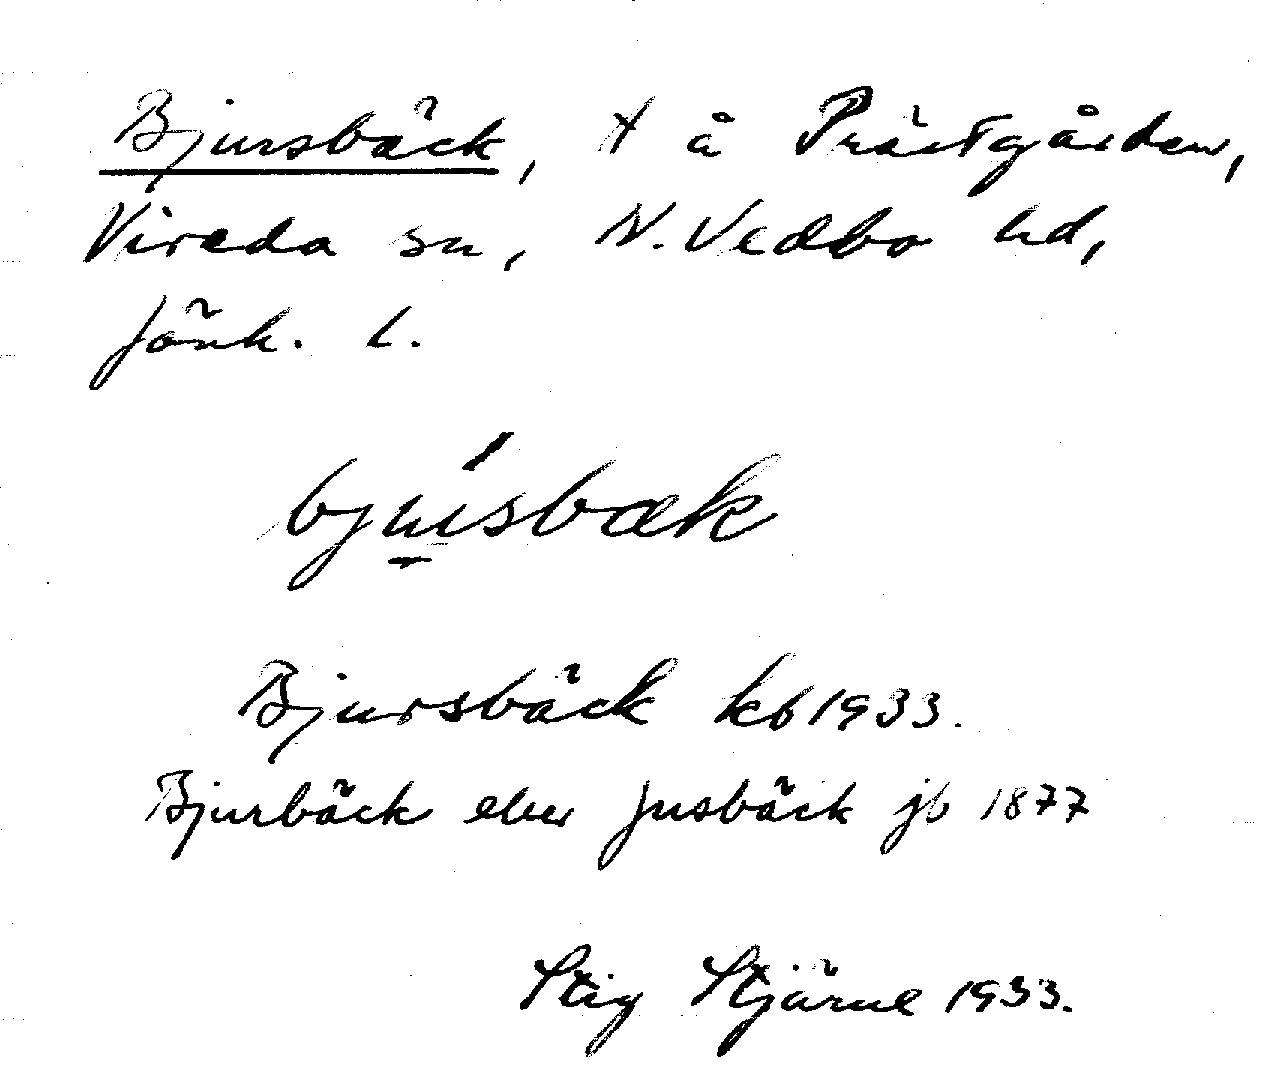 Bjursbäck, t å Prästgården,
Vireda sn, N. Vedbo hd,
Jönk. l.
bju̠ʹsbæk
Bjursbäck kb 1933.
Bjurbäck eller Jusbäck jb 1877
Stig Stjärne 1933.